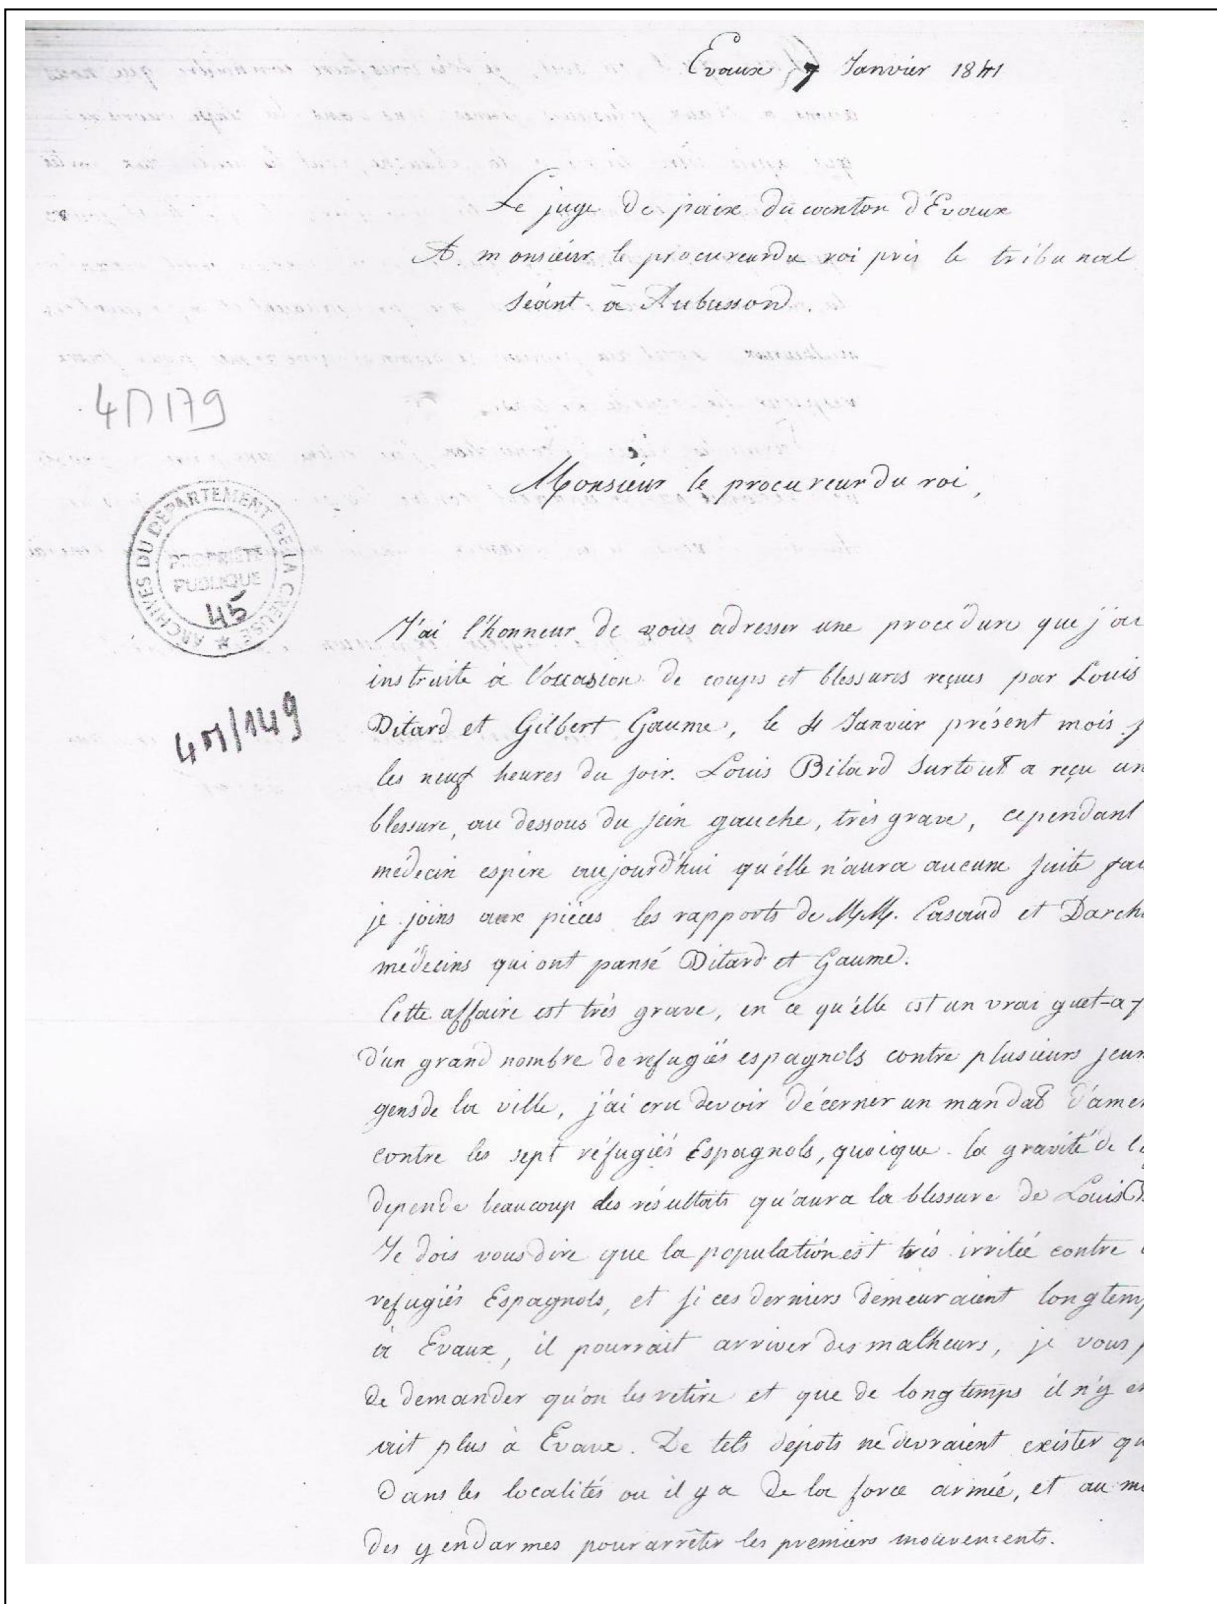 Evaux 7 Janvier 1841
Le juge de paix du canton d'Evaux
A monsieur le procureur du roi près le tribunal
séant à Aubusson.
4M179
Monsieur le procureur du roi,
ARCHIVES DU DEPARTEMENT DE LA CREUSE ★
PROPRIETE
PUBLIQUE
45
4M/149
J'ai l'honneur de vous adresser une procédure que j'ai
instruite à l'occasion de coups et blessures reçues par Louis
Ditard et Gilbert Gaume, le 4 Janvier présent mois
les neuf heures du soir. Louis Bitard surtout a reçu un
blessure, au dessous du sein gauche, très grave, cependant
médecin espère aujourd'hui qu'élle n'aura aucune suite
je joins aux pièces les rapports de MM. Casaud et Darch
médecins qui ont pansé Ditard et Gaume.
Cette affaire est très grave, en ce qu'élle est un vrai guet-a
d'un grand nombre de refugiés espagnols contre plusieurs jeun
gens de la ville, j'ai cru devoir décerner un mandat d'amen
contre les sept réfugiés Espagnols, quoique la gravité de l
depende beaucoup des résultats qu'aura la blessure de Louis
Je dois vous dire que la population est très irritée contre
refugiés Espagnols, et si ces derniers demeuraient longtemp
à Evaux, il pourrait arriver des malheurs, je vous
de demander qu'on les retire et que de longtemps il n'y en
ait plus à Evaux. De tels dépots ne devraient exister qu
dans les localités ou il y a de la force armée, et au m
des gendarmes pour arrêter les premiers mouvements.